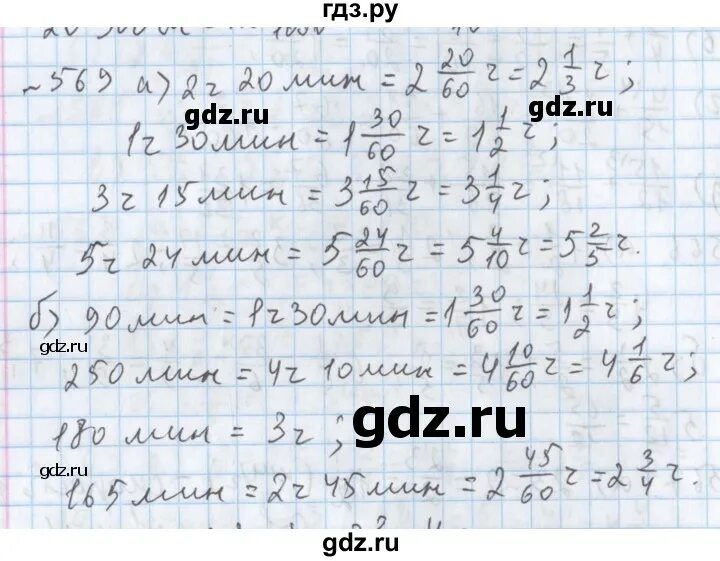 гдз.ру
№ 569 а) 2ч 20 мин = 2 20/60 ч = 2 1/3 ч;
gdz.ru
gdz.ru
1ч 30 мин = 1 30/60 ч = 1 1/2 ч;
3ч 15 мин = 3 15/60 ч = 3 1/4 ч;
5ч 24 мин = 5 24/60 ч = 5 4/10 ч = 5 2/5 ч.
б) 90 мин = 1ч 30 мин = 1 30/60 ч = 1 1/2 ч;
gdz.ru
250 мин = 4ч 10 мин = 4 10/60 ч = 4 1/6 ч;
180 мин = 3ч;
gdz.ru
gdz.ru
165 мин = 2ч 45 мин = 2 45/60 ч = 2 3/4 ч.
gdz.ru